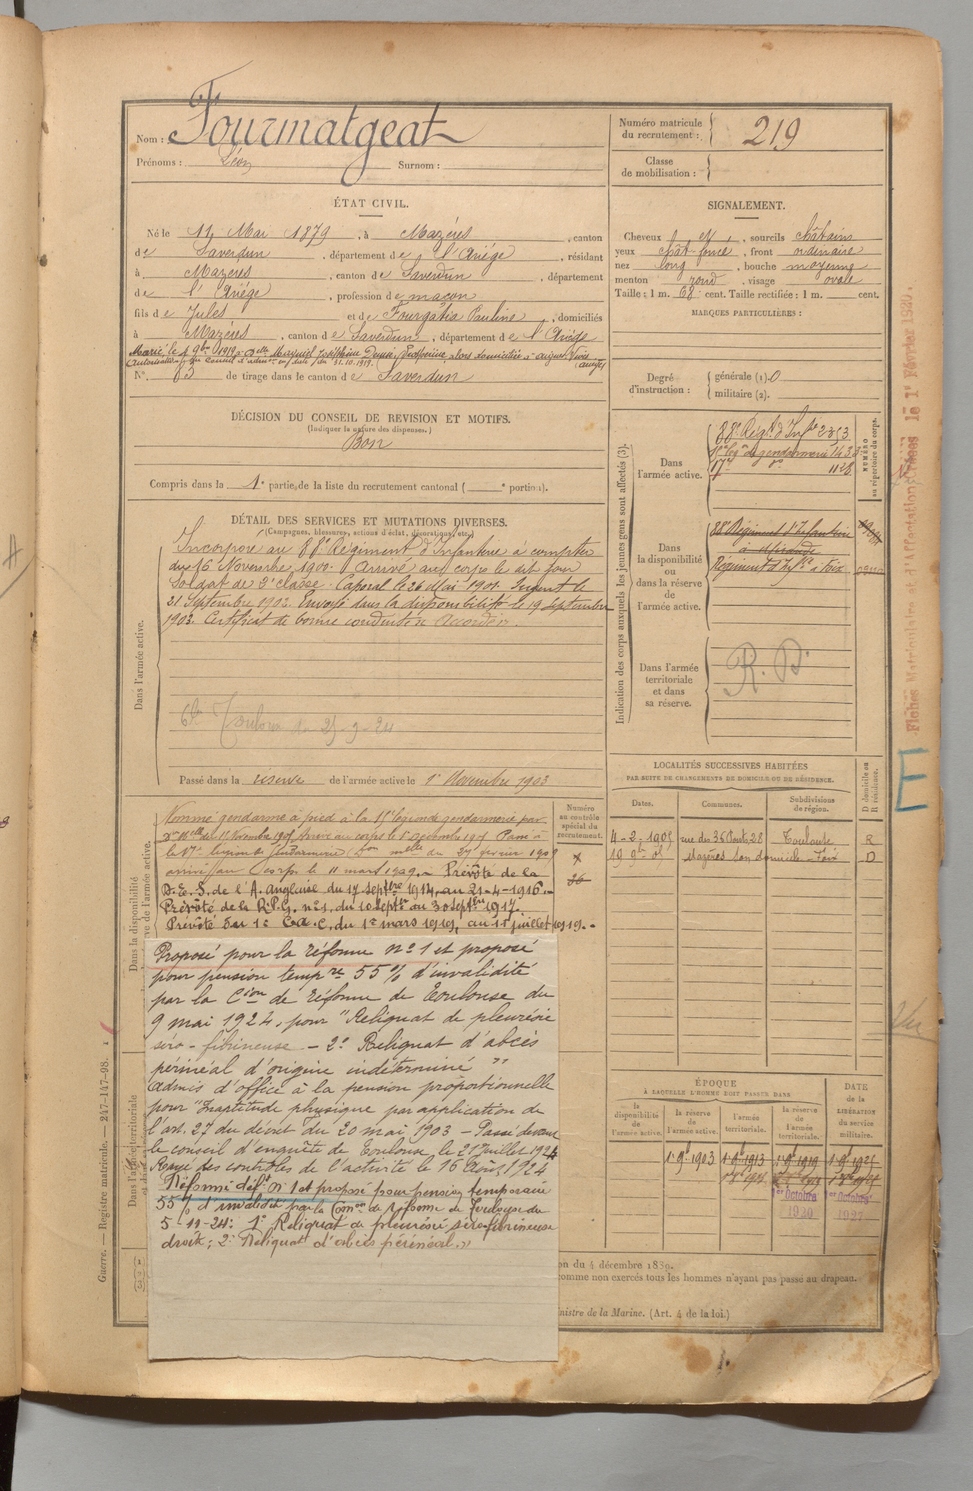 Nom : Fourmatgeat
Prénoms : Léon Surnom :
ÉTAT CIVIL.
Né le 11 Mai 1879, à Mazéres, canton
de Saverdun, département de l'Ariége, résidant
à Mazeres, canton de Saverdun, département
de l'Ariége, profession de maçon
fils de Jules et de Fourgatia Pauline, domiciliés
à Mazéres, canton de Saverdun, département de l'Ariège
Marié, le 9bre 1919 à domiciliée à
N°. 83 de tirage dans le canton de Saverdun
DÉCISION DU CONSEIL DE REVISION ET MOTIFS.
(Indiquer la nature des dispenses.)
Bon
Compris dans la 1e partie de la liste du recrutement cantonal ( e portion).
DÉTAIL DES SERVICES ET MUTATIONS DIVERSES.
(Campagnes, blessures, actions d'éclat, décorations, etc.)
Dans l'armée active.
Incorporé au 88e Régiment d'Infanterie à compter
du 16 Novembre 1900. Arrivé au corps le dit jour
Soldat de 2e classe. Caporal le 26 Mai 1901. Sergent le
21 Septembre 1902. Envoyé dans la disponibilité le 19 septembre
1903. Certificat de bonne conduite accordé.
Toulouse 25-9-24
Passé dans la réserve de l'armée active le 1er Novembre 1903
Numéro
au contrôle
spécial du
recrutement.
Nommé gendarme à pied à la 15e légion de gendarmerie par
arrivé au corps le Passé à
la 17e légion de gendarmerie février 1909
arrivé au corps le 11 mars 1909. - Prévôté de la
D.E.S. de l'A. Anglaise du 17 septbre 1914 au 21-4-1916.-
Prévôté de la n°1, du 10 Septbre au 30 Septbre 1917.
Prévôté du 1e C.A.C. du 1er mars 1919, au 11 juillet 1919.-
Proposé pour la réforme n° 1 et proposé
pour pension tempre 55 % d'invalidité
par la Cion de réforme de Toulouse du
9 mai 1924, pour "Reliquat de pleurésie
séro-fibrineuse - 2° Reliquat d'abcès
périnéal d'origine indéterminé "
Admis d'office à la pension proportionnelle
pour "Inaptitude physique par application de
l'art. 27 du décret du 20 mai 1903 - Passé devant
le conseil d'enquête de Toulouse le 21 Juillet 1924
Rayé des contrôles de l'activité le 16 Août 1924
Réformé déft n° 1 et proposé pour pension temporaire
55 % d'invalidité par la Comon de réforme de Toulouse du
5-11-24: 1° Reliquat de pleurésie séro-fibrineuse
droite; 2° Reliquat d'abcès périnéal."
Dans la disponibilité
Dans l'armée territoriale
Guerre. — Registre matricule. — 247-147-98.
Numéro matricule
du recrutement : 219
Classe
de mobilisation :
SIGNALEMENT.
Cheveux et, sourcils châtains
yeux chât. foncé, front ordinaire
nez long, bouche moyenne
menton rond, visage ovale
Taille : 1 m. 68 cent. Taille rectifiée : 1 m. cent.
MARQUES PARTICULIÈRES :
Degré
d'instruction :
générale (1) 0
militaire (2).
Indication des corps auxquels les jeunes gens sont affectés (3).
NUMÉRO
au répertoire du corps.
Dans
l'armée active.
88e Régt d'Infrie 2353
15e légon de gendarmerie 1433
17e do 1128
Dans
la disponibilité
ou
dans la réserve
de
l'armée active.
88e Régiment d'Infanterie
à Mirande
Régiment d'Infie à Foix
Dans l'armée
territoriale
et dans
sa réserve.
R. D.
LOCALITÉS SUCCESSIVES HABITÉES
PAR SUITE DE CHANGEMENTS DE DOMICILE OU DE RÉSIDENCE.
D domicile ou
R résidence.
Dates. Communes. Subdivisions
de région.
4-2-1905 rue des 36 Ponts 28 Toulouse R
Mazères son domicile Foix D
ÉPOQUE
À LAQUELLE L'HOMME DOIT PASSER DANS
DATE
de la
LIBÉRATION
du service
militaire.
la
disponibilité
de
l'armée active.
la réserve
de
l'armée active.
l'armée
territoriale.
la réserve
de
l'armée
territoriale.
1er 9b 1903 1er 9b 1913 1er 9b 1919 1er 9b 1925
1er Octobre 1er Octobre
1920 1927
on du 4 décembre 1889.
comme non exercés tous les hommes n'ayant pas passé au drapeau.
nistre de la Marine. (Art. 4 de la loi.)
Fiches Matricule et d'Affectation Créées le 1er Février 1920.
E